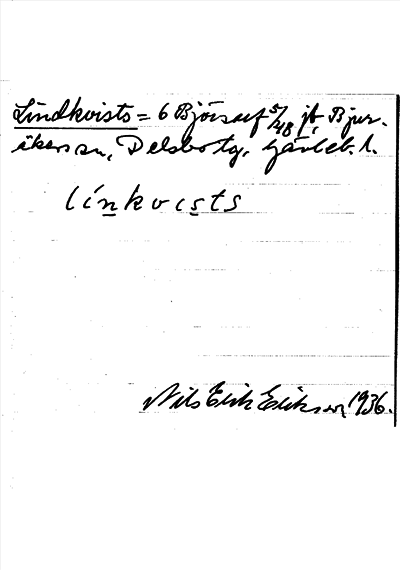 Lindkvists = 6 Björsarf 5/48 jt, Bjur-
åkers sn, Delsbo tg, Gävleb. l.
línkvists
Nils Erik Erikson 1936.